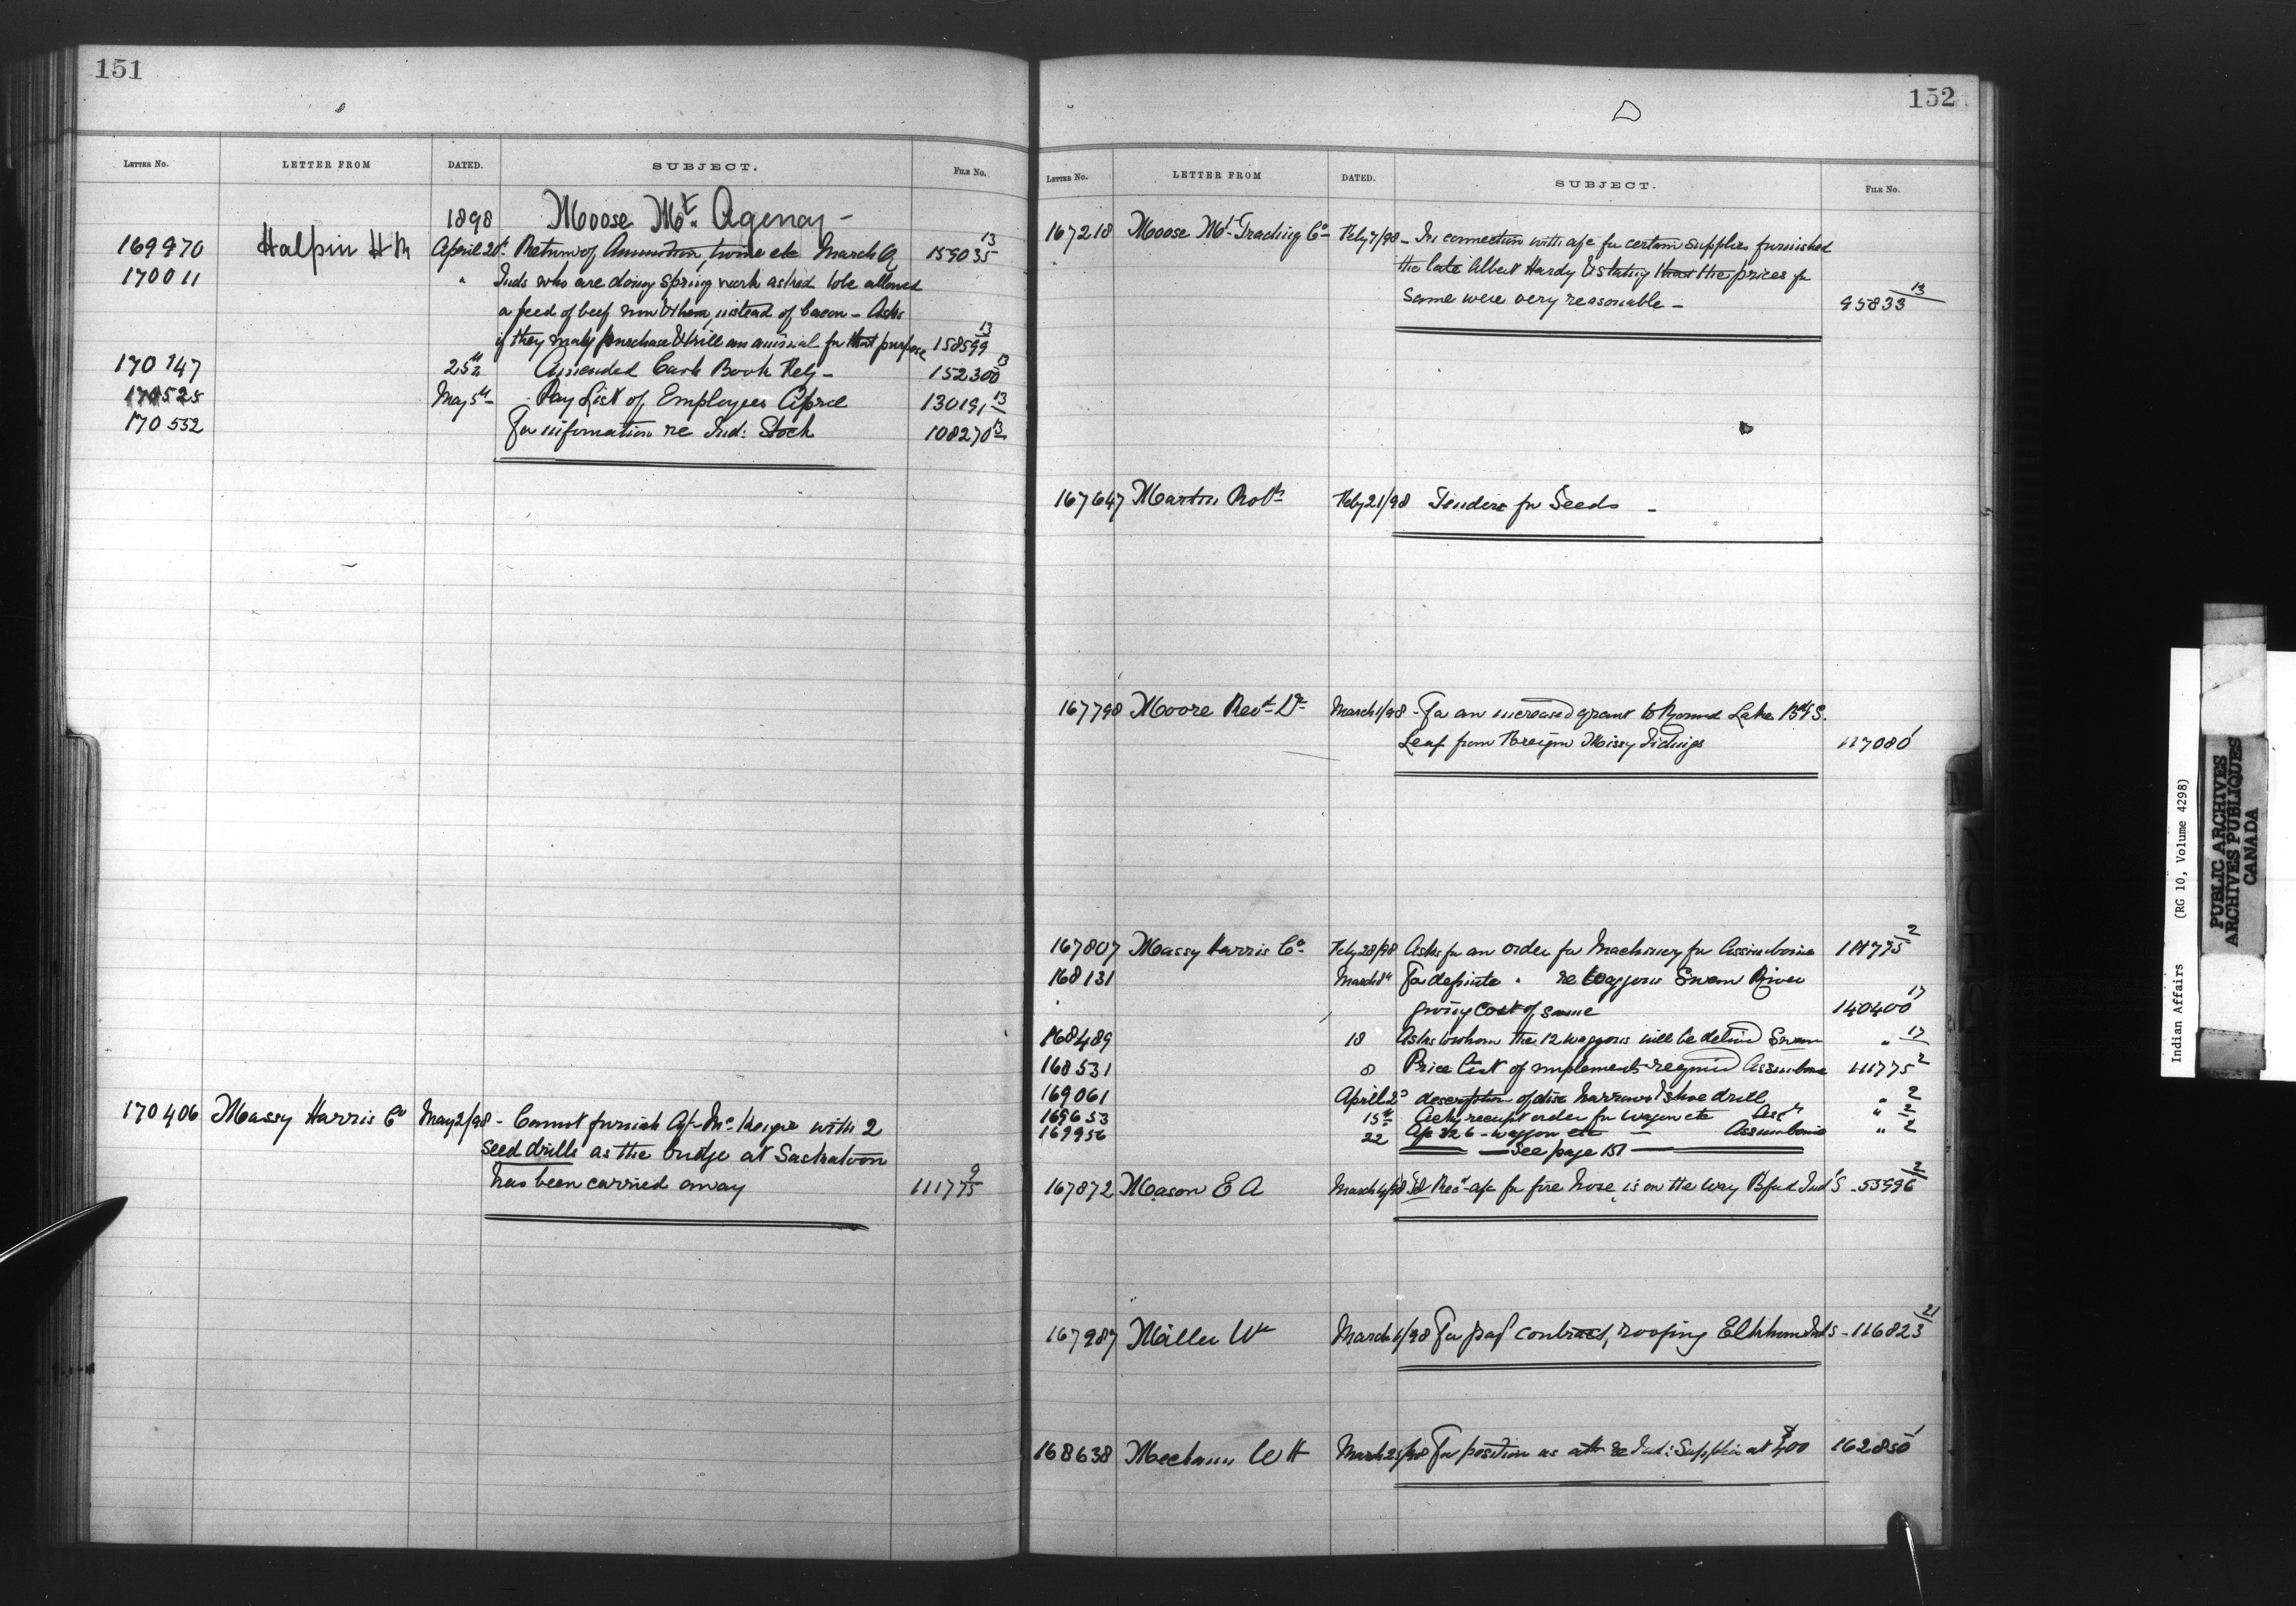 151
LETTER NO. LETTER FROM DATED. SUBJECT. FILE No.
1898 Moose Mt. Agency -
169970 Halpin H R April 20 Return of Ammunition, twine etc March Q 159035 13
170011 " Inds who are doing spring work asked to be allowed
a feed of beef now & then, instead of bacon - Asks
if they may purchase & kill an animal for that purpose 158599 13
170147 25th Amended Cash Book Feby - 152300 13
170525 May 5th Pay List of Employees April 130191 13
170532 For information re Ind: Stock 108270 13
170406 Massy Harris Co May 2/98 - Cannot furnish Agt Mc with 2
seed drills as the bridge at Saskatoon
has been carried away 111775 9
152
LETTER NO. LETTER FROM DATED. SUBJECT. FILE No.
167218 Moose Mt Trading Co Feby 7/98 - In connection with a/c for certain supplies furnished
the late Albert Hardy & stating that the prices for
same were very reasonable - 95833 13
167647 Martin Robt Feby 21/98 Tenders for Seeds -
167798 Moore Revd Dr March 1/98 - For an increased grant to Round Lake Bdg S.
Leaf from Foreign Missy Tidings 117080 1
167807 Massy Harris Co Feby 28/98 Asks for an order for Machinery for Assiniboine 111775 2
168131 March 8th For definite " re Waggons Swan River
giving cost of same 140400 17
168489 18 Asks to whom the 12 waggons will be delivd Swan " 17
168531 8 Price list of implements required Assiniboine 111775 2
169061 April 2d description of disc harrows & shoe drill " 2
169653 15th Ackg receipt order for wagon etc Assa " 2
169956 22 A/c 326 - waggon etc - Assiniboine " 2
See page 151
167872 Mason E A March 4/98 a/c for fire hose, is on the way Bford Ind S - 53996 2
167987 Miller Wm March 1/98 For payt contract, roofing Elkhorn Ind S - 116823 21
168638 Mecham W H March 25/98 For position as re Ind: Supplies at $400 162850 1
Indian Affairs (RG 10, Volume 4298)
PUBLIC ARCHIVES
ARCHIVES PUBLIQUES
CANADA